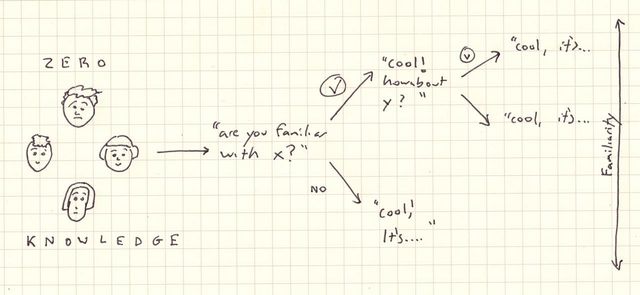 ZERO
KNOWLEDGE
"are you familiar
with x?"
"cool!
how about
y?"
"cool, it's...
"cool, it's...
NO
"cool!
It's.... "
Familiarity